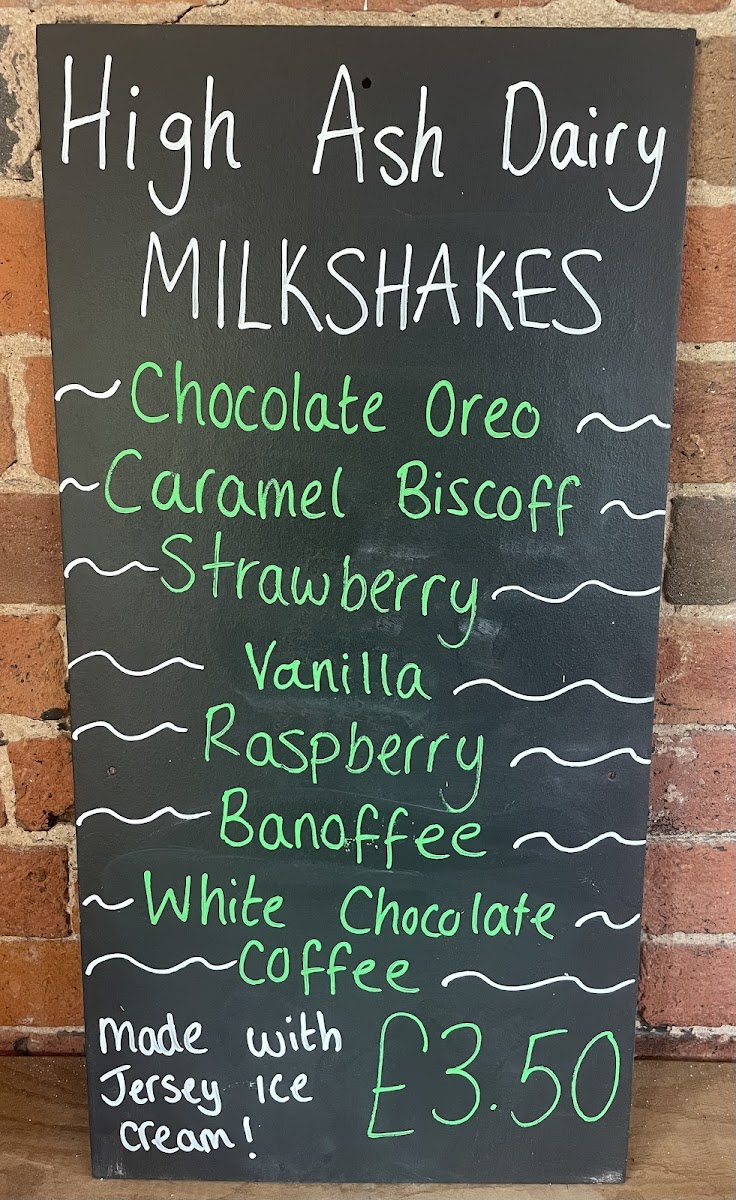 High Ash Dairy
MILKSHAKES
Chocolate Oreo
Caramel Biscoff
Strawberry
Vanilla
Raspberry
Banoffee
White Chocolate
Coffee
made with
Jersey Ice
cream!
£3.50